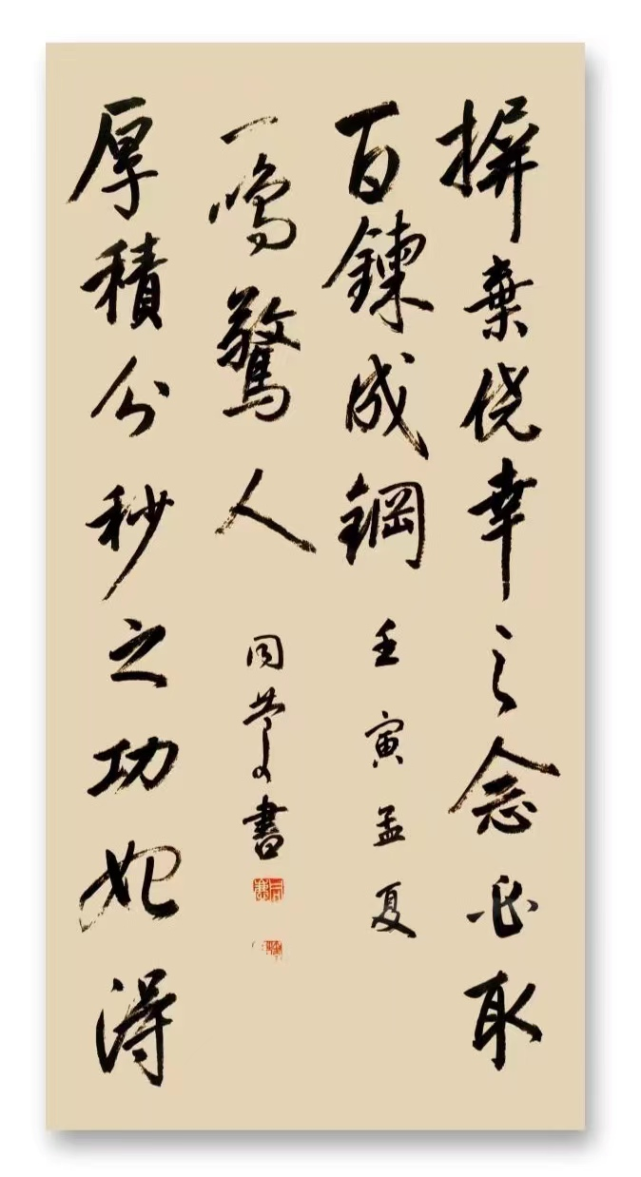 摒棄侥幸之念必取
百鍊成鋼
壬寅孟夏
厚積分秒之功始得
一鳴驚人
同書